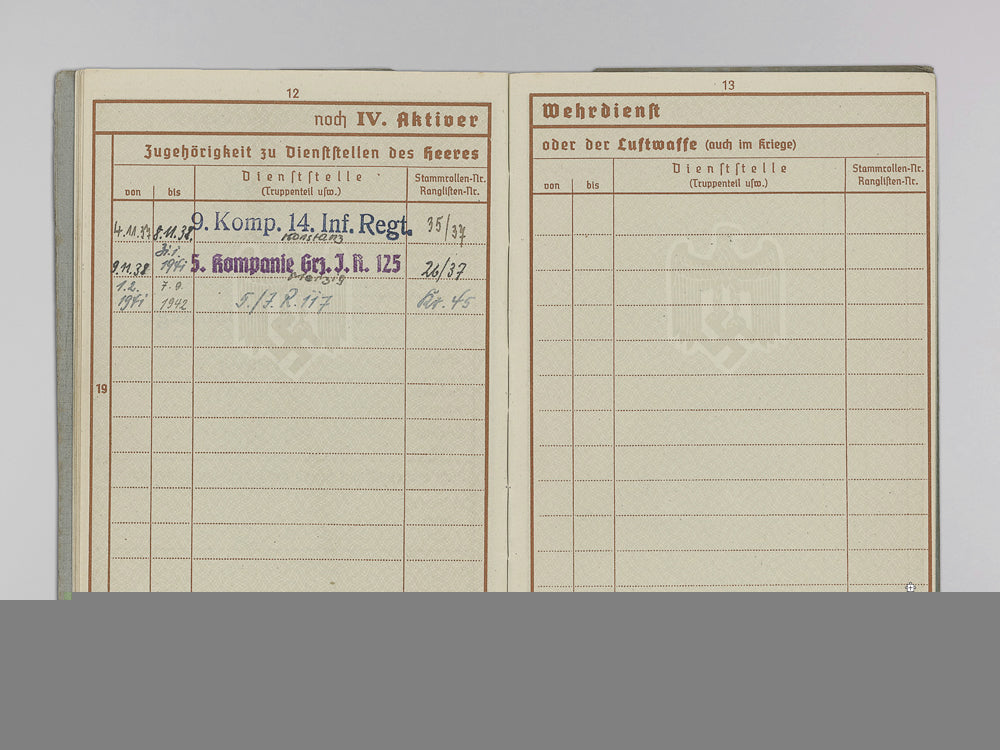 12
noch IV. Aktiver
Zugehörigkeit zu Dienststellen des Heeres
von bis Dienststelle (Truppenteil usw.) Stammrollen-Nr. Ranglisten-Nr.
4.11.37 8.11.38. 9. Komp. 14. Inf. Regt. 35/37
Konstanz
31.1.
9.11.38 1941 5. Kompanie Grz. I. R. 125 26/37
Merzig
1.2. 7.9.
1941 1942 5./J.R. 117 Kr. 45
19
13
Wehrdienst
oder der Luftwaffe (auch im Kriege)
von bis Dienststelle (Truppenteil usw.) Stammrollen-Nr. Ranglisten-Nr.